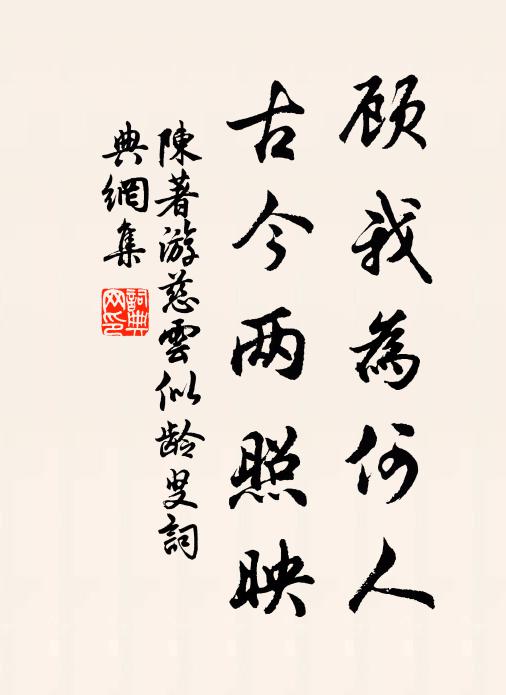 顾我為何人
古今两照映
陳著游慈雲似龄叟詞
典網集
詞典網印